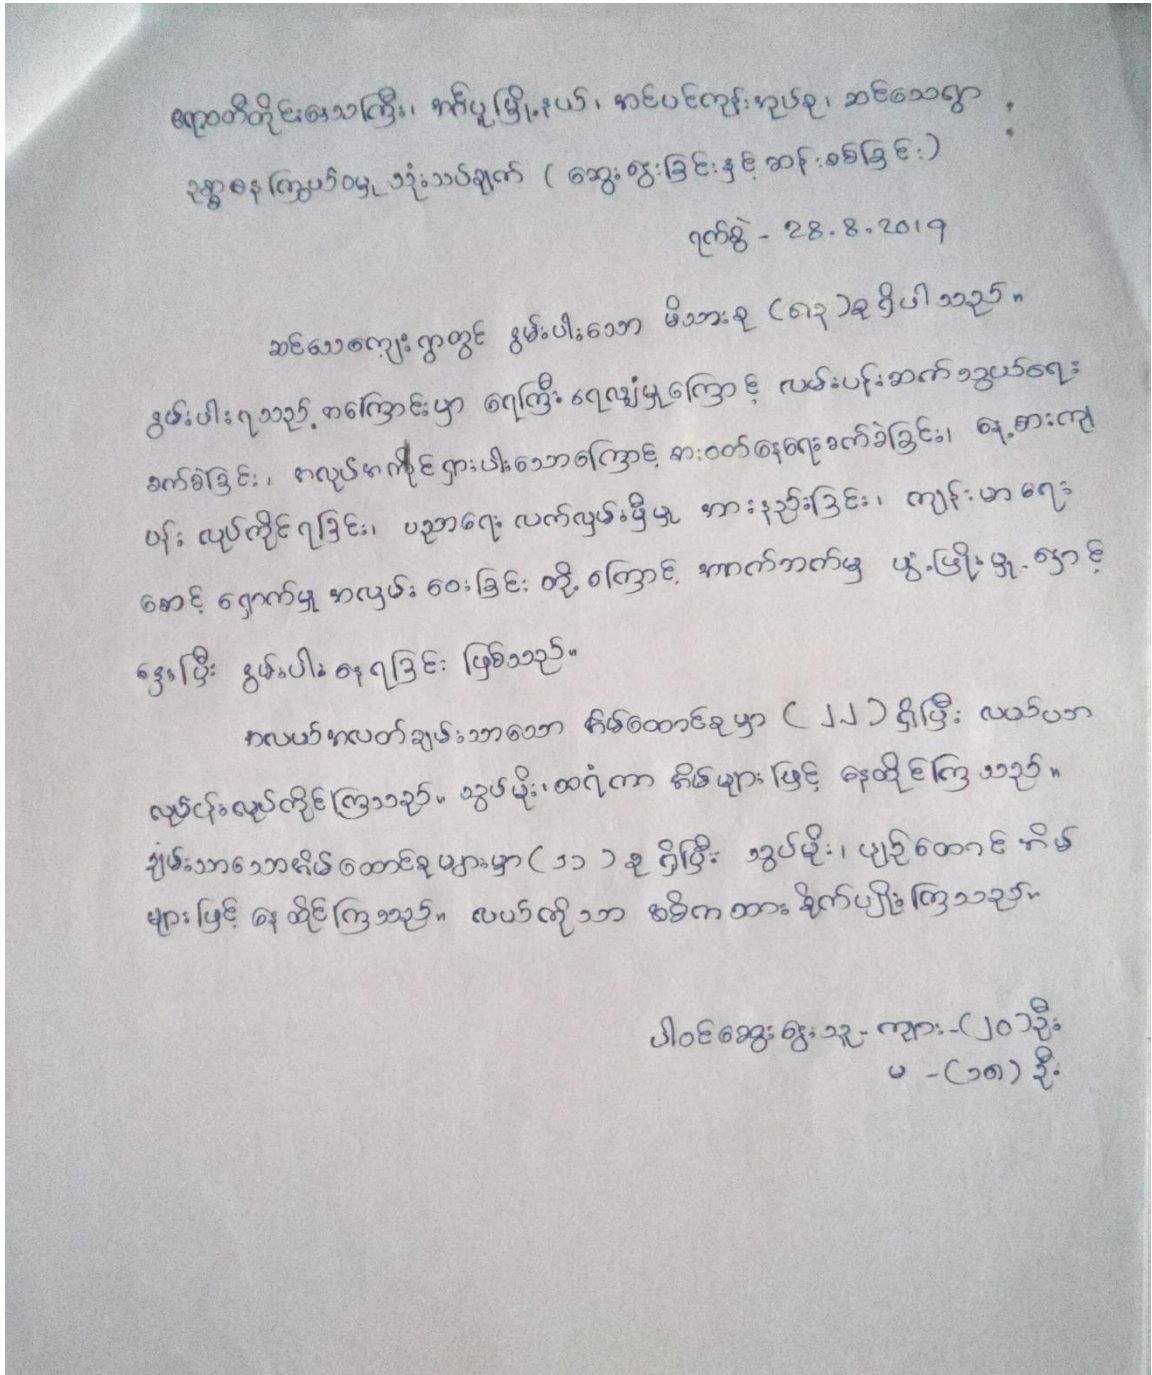 ဧရာဝတီတိုင်းဒေသကြီး၊ အင်္ဂပူမြို့နယ်၊ အင်ပင်ကုန်းအုပ်စု၊ ဆင်သေရွာ
ဥစ္စာဓနကြွယ်ဝမှု သုံးသပ်ချက် (ဆွေးနွေးခြင်းနှင့် ဆန်းစစ်ခြင်း)
ရက်စွဲ - 28.8.2019
ဆင်သေကျေးရွာတွင် နွမ်းပါးသော မိသားစု (၈၃)စု ရှိပါသည်။
နွမ်းပါးရသည့်အကြောင်းမှာ ရေကြီးရေလျှံမှုကြောင့် လမ်းပန်းဆက်သွယ်ရေး
ခက်ခဲခြင်း၊ အလုပ်အကိုင်ရှားပါးသောကြောင့် စားဝတ်နေရေးခက်ခဲခြင်း၊ နေ့စားကျ
ပန်း လုပ်ကိုင်ရခြင်း၊ ပညာရေး လက်လှမ်းမှီမှု အားနည်းခြင်း၊ ကျန်းမာရေး
စောင့်ရှောက်မှု အလှမ်းဝေးခြင်း တို့ကြောင့် ဘက်ဘက်မှ ဖွံ့ဖြိုးမှု နှောင့်
နှေးပြီး နွမ်းပါးနေရခြင်း ဖြစ်သည်။
အလယ်အလတ်ချမ်းသာသော အိမ်ထောင်စုမှာ (၂၂) ရှိပြီး လယ်ယာ
လုပ်ငန်းလုပ်ကိုင်ကြသည်။ သွပ်မိုး၊ ထရံကာ အိမ်များဖြင့် နေထိုင်ကြသည်။
ချမ်းသာသောအိမ်ထောင်စုများမှာ (၁၁) စု ရှိပြီး သွပ်မိုး၊ ပျဉ်ထောင် အိမ်
များဖြင့် နေထိုင်ကြသည်။ လယ်ကိုသာ အဓိကထား စိုက်ပျိုးကြသည်။
ပါဝင်ဆွေးနွေးသူ - ကျား - (၂၀)ဦး
မ - (၁၈) ဦး